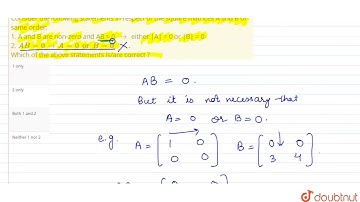 Consider the following statements in respect of the square matrices A and B of
same order:
1. A and B are non-zero and AB = 0 ⇒ either |A| = 0 or |B| = 0
2. AB = 0 ⇒ A = 0 or B = 0 ×.
Which of the above statements is/are correct ?
1 only
2 only
Both 1 and 2
Neither 1 not 2
AB = 0.
But it is not necessary that
A = 0 or B = 0.
e.g. A = [ 1 0 B = [ 0 0
0 0 ] 3 4 ].
doubtnut